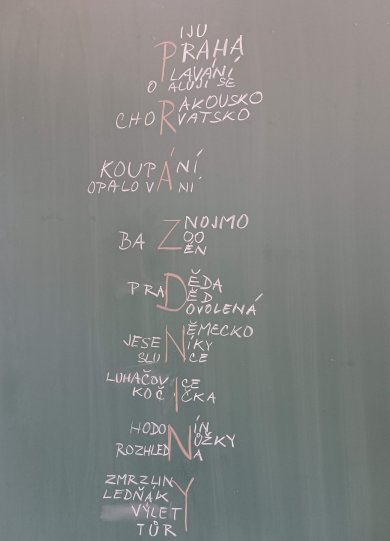 PIJU
PRAHA
PLAVÁNÍ
OPALUJI SE
RAKOUSKO
CHORVATSKO
KOUPÁNÍ
OPALOVÁNÍ
ZNOJMO
ZOO
BAZÉN
PRADĚDA
DĚD
DOVOLENÁ
NĚMECKO
JESENÍKY
SLUNCE
LUHAČOVICE
KOČIČKA
HODONÍN
NŮŽKY
ROZHLEDNA
ZMRZLINY
LEDŇÁKY
VÝLETY
TŮRY